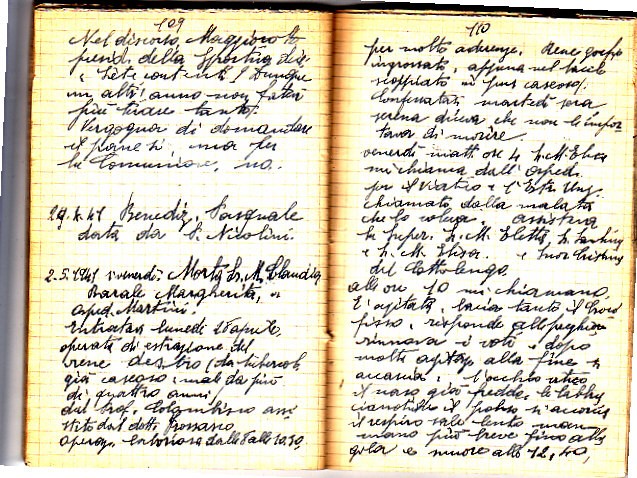 109
Nel discorso, Maggiore il
presid. della
e siete contenti! Dunque
un altr'anno non fatevi
più tirare tanto.
Vergogna di domandare
il pane sì, ma per
la Comunione, no.
29.4.41 Benediz. Pasquale
data da D. Nicolini.
2.5.1941 venerdì. Morta Sr. M. Claudia
Barale Margherita, in
osped. Martini.
Entrata lunedì 28 aprile,
operata di estrazione del
rene destro (da tubercoli
già caseoso, male da più
di quattro anni
dal prof. Colombino assi
stito dal dott.
operaz. laboriosa dalle 8 alle 10.30,
110
per molte aderenze. Rene
ingrossato, appena nel
scoppiato in pus caseoso.
martedì sera
serena diceva che non le impor
tava di morire.
venerdì matt. ore 4 Sr. M. Elisa
mi chiama dall'osped.
per il Viatico e l'Estr. Unz.
chiamato dalla malata
che lo voleva. assisteva
la Super. Sr. M. Eletta, Sr.
e Sr. M. Elisa. e Suor
del Cottolengo.
alle ore 10 mi chiamano.
È agitata, bacia tanto il Croci
fisso, risponde alle preghiere
rinnova i voti e dopo
molta agitaz. alla fine si
accascia, l'occhio vitreo
il naso già freddo, le labbra
cianotiche il polso
il respiro sale lento man
mano più breve fino alla
gola e muore alle 12,40,